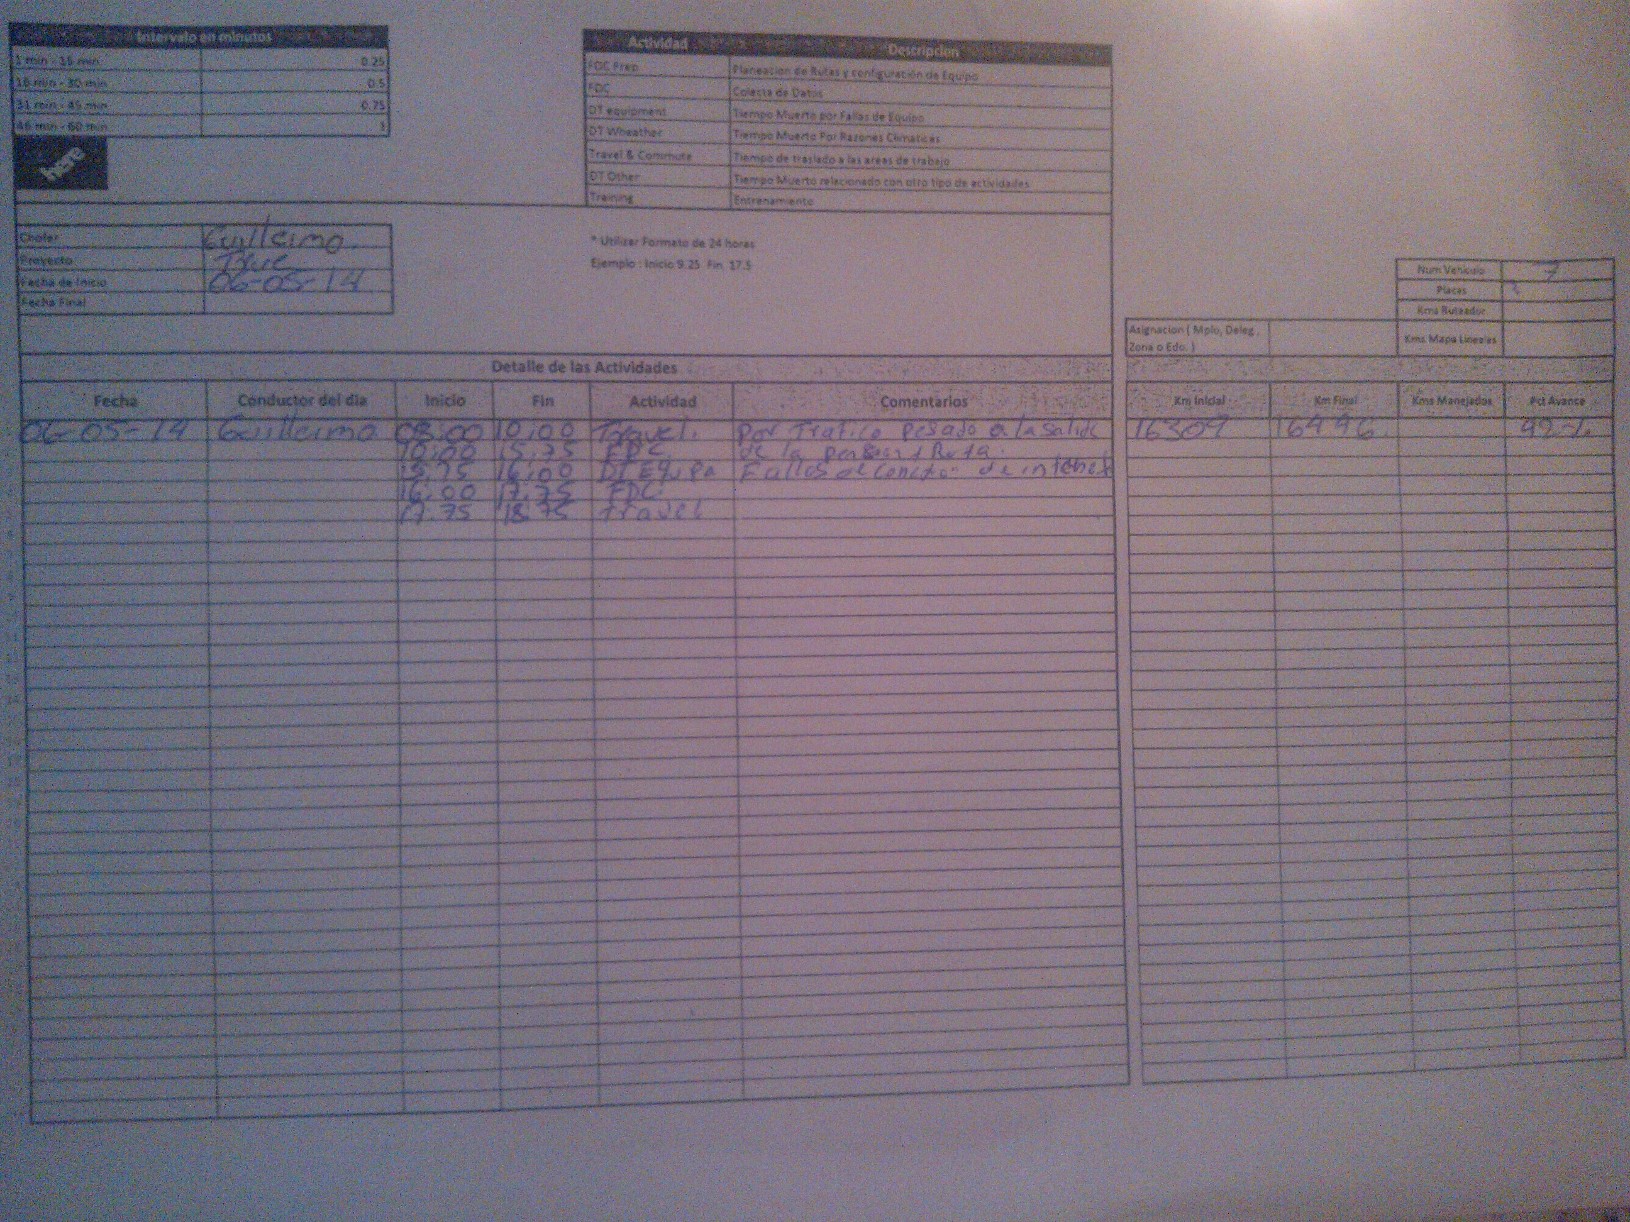 Intervalo en minutos
1 min - 15 min 0.25
16 min - 30 min 0.5
31 min - 45 min 0.75
46 min - 60 min 1
here
Actividad Descripcion
FDC Prep Planeacion de Rutas y configuración de Equipo
FDC Colecta de Datos
DT equipment Tiempo Muerto por Fallas de Equipo
DT Wheather Tiempo Muerto Por Razones Climaticas
Travel & Commute Tiempo de traslado a las areas de trabajo
DT Other Tiempo Muerto relacionado con otro tipo de actividades
Training Entrenamiento
Chofer Guillermo
Proyecto
Fecha de Inicio 06-05-14
Fecha Final
* Utilizar Formato de 24 horas
Ejemplo : Inicio 9.25 Fin 17.5
Num Vehiculo 7
Placas
Kms Ruteador
Asignacion ( Mpio, Deleg , Kms Mapa Lineales
Zona o Edo. )
Detalle de las Actividades
Fecha Conductor del dia Inicio Fin Actividad Comentarios Km Inicial Km Final Kms Manejados Pct Avance
06-05-14 Guillermo 08:00 10:00 Travel. por Trafico pesado a la salida 16309 16496 92%
10:00 15.75 FDC de la Ruta.
15.75 16:00 DT Equipo Fallos de de internet
16:00 17.75 FDC
17.75 18.75 travel